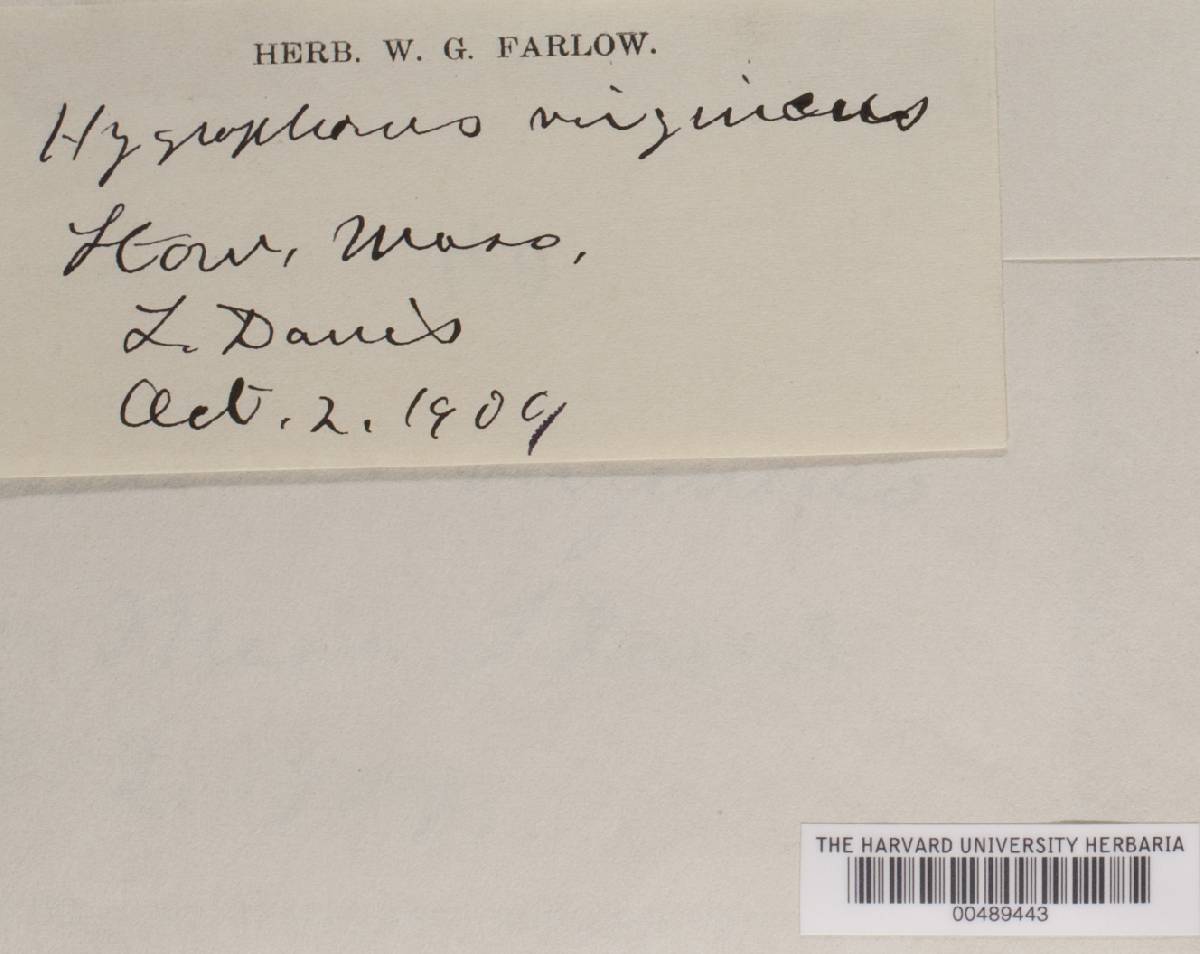 HERB. W. G. FARLOW.
Hygrophorus virgineus
Stow, Mass,
L. Davis
Oct. 2. 1909
THE HARVARD UNIVERSITY HERBARIA
00489443